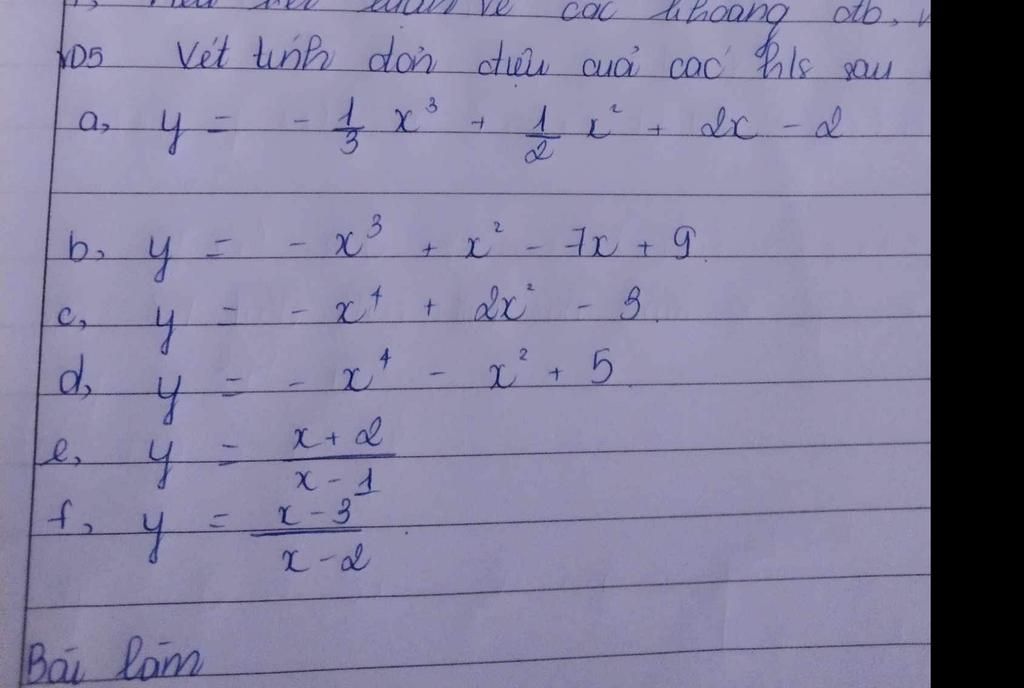 về các khoảng đb,
VD5 Xét tính đơn điệu của các h/s sau
a, y = - 1/3 x³ + 1/2 x² + 2x - 2
b, y = - x³ + x² - 7x + 9
c, y = - x⁴ + 2x² - 3
d, y = - x⁴ - x² + 5
e, y = (x + 2)/(x - 1)
f, y = (x - 3)/(x - 2)
Bài làm